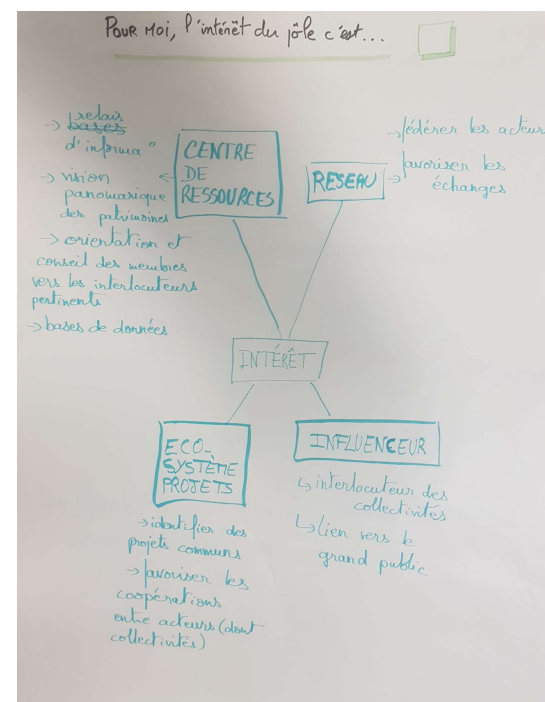 Pour moi, l'intérêt du pôle c'est...
→ relais
bases
d'informa°
→ vision
panomarique
des patrimoines
→ orientation et
conseil des membres
vers les interlocuteurs
pertinents
→ bases de données
CENTRE
DE
RESSOURCES
RESEAU
→ fédérer les acteurs
→ favoriser les
échanges
INTÉRÊT
ECO-
SYSTÈME
PROJETS
→ identifier des
projets communs
→ favoriser les
coopérations
entre acteurs (dont
collectivités)
INFLUENCEUR
↳ interlocuteur des
collectivités
↳ lien vers le
grand public